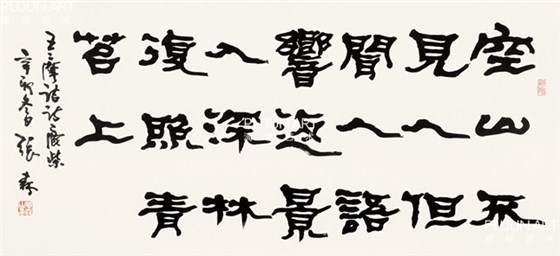 空山不
見人但
聞人語
響返景
入深林
復照青
苔上
王摩詰詩鹿柴
辛卯 張森